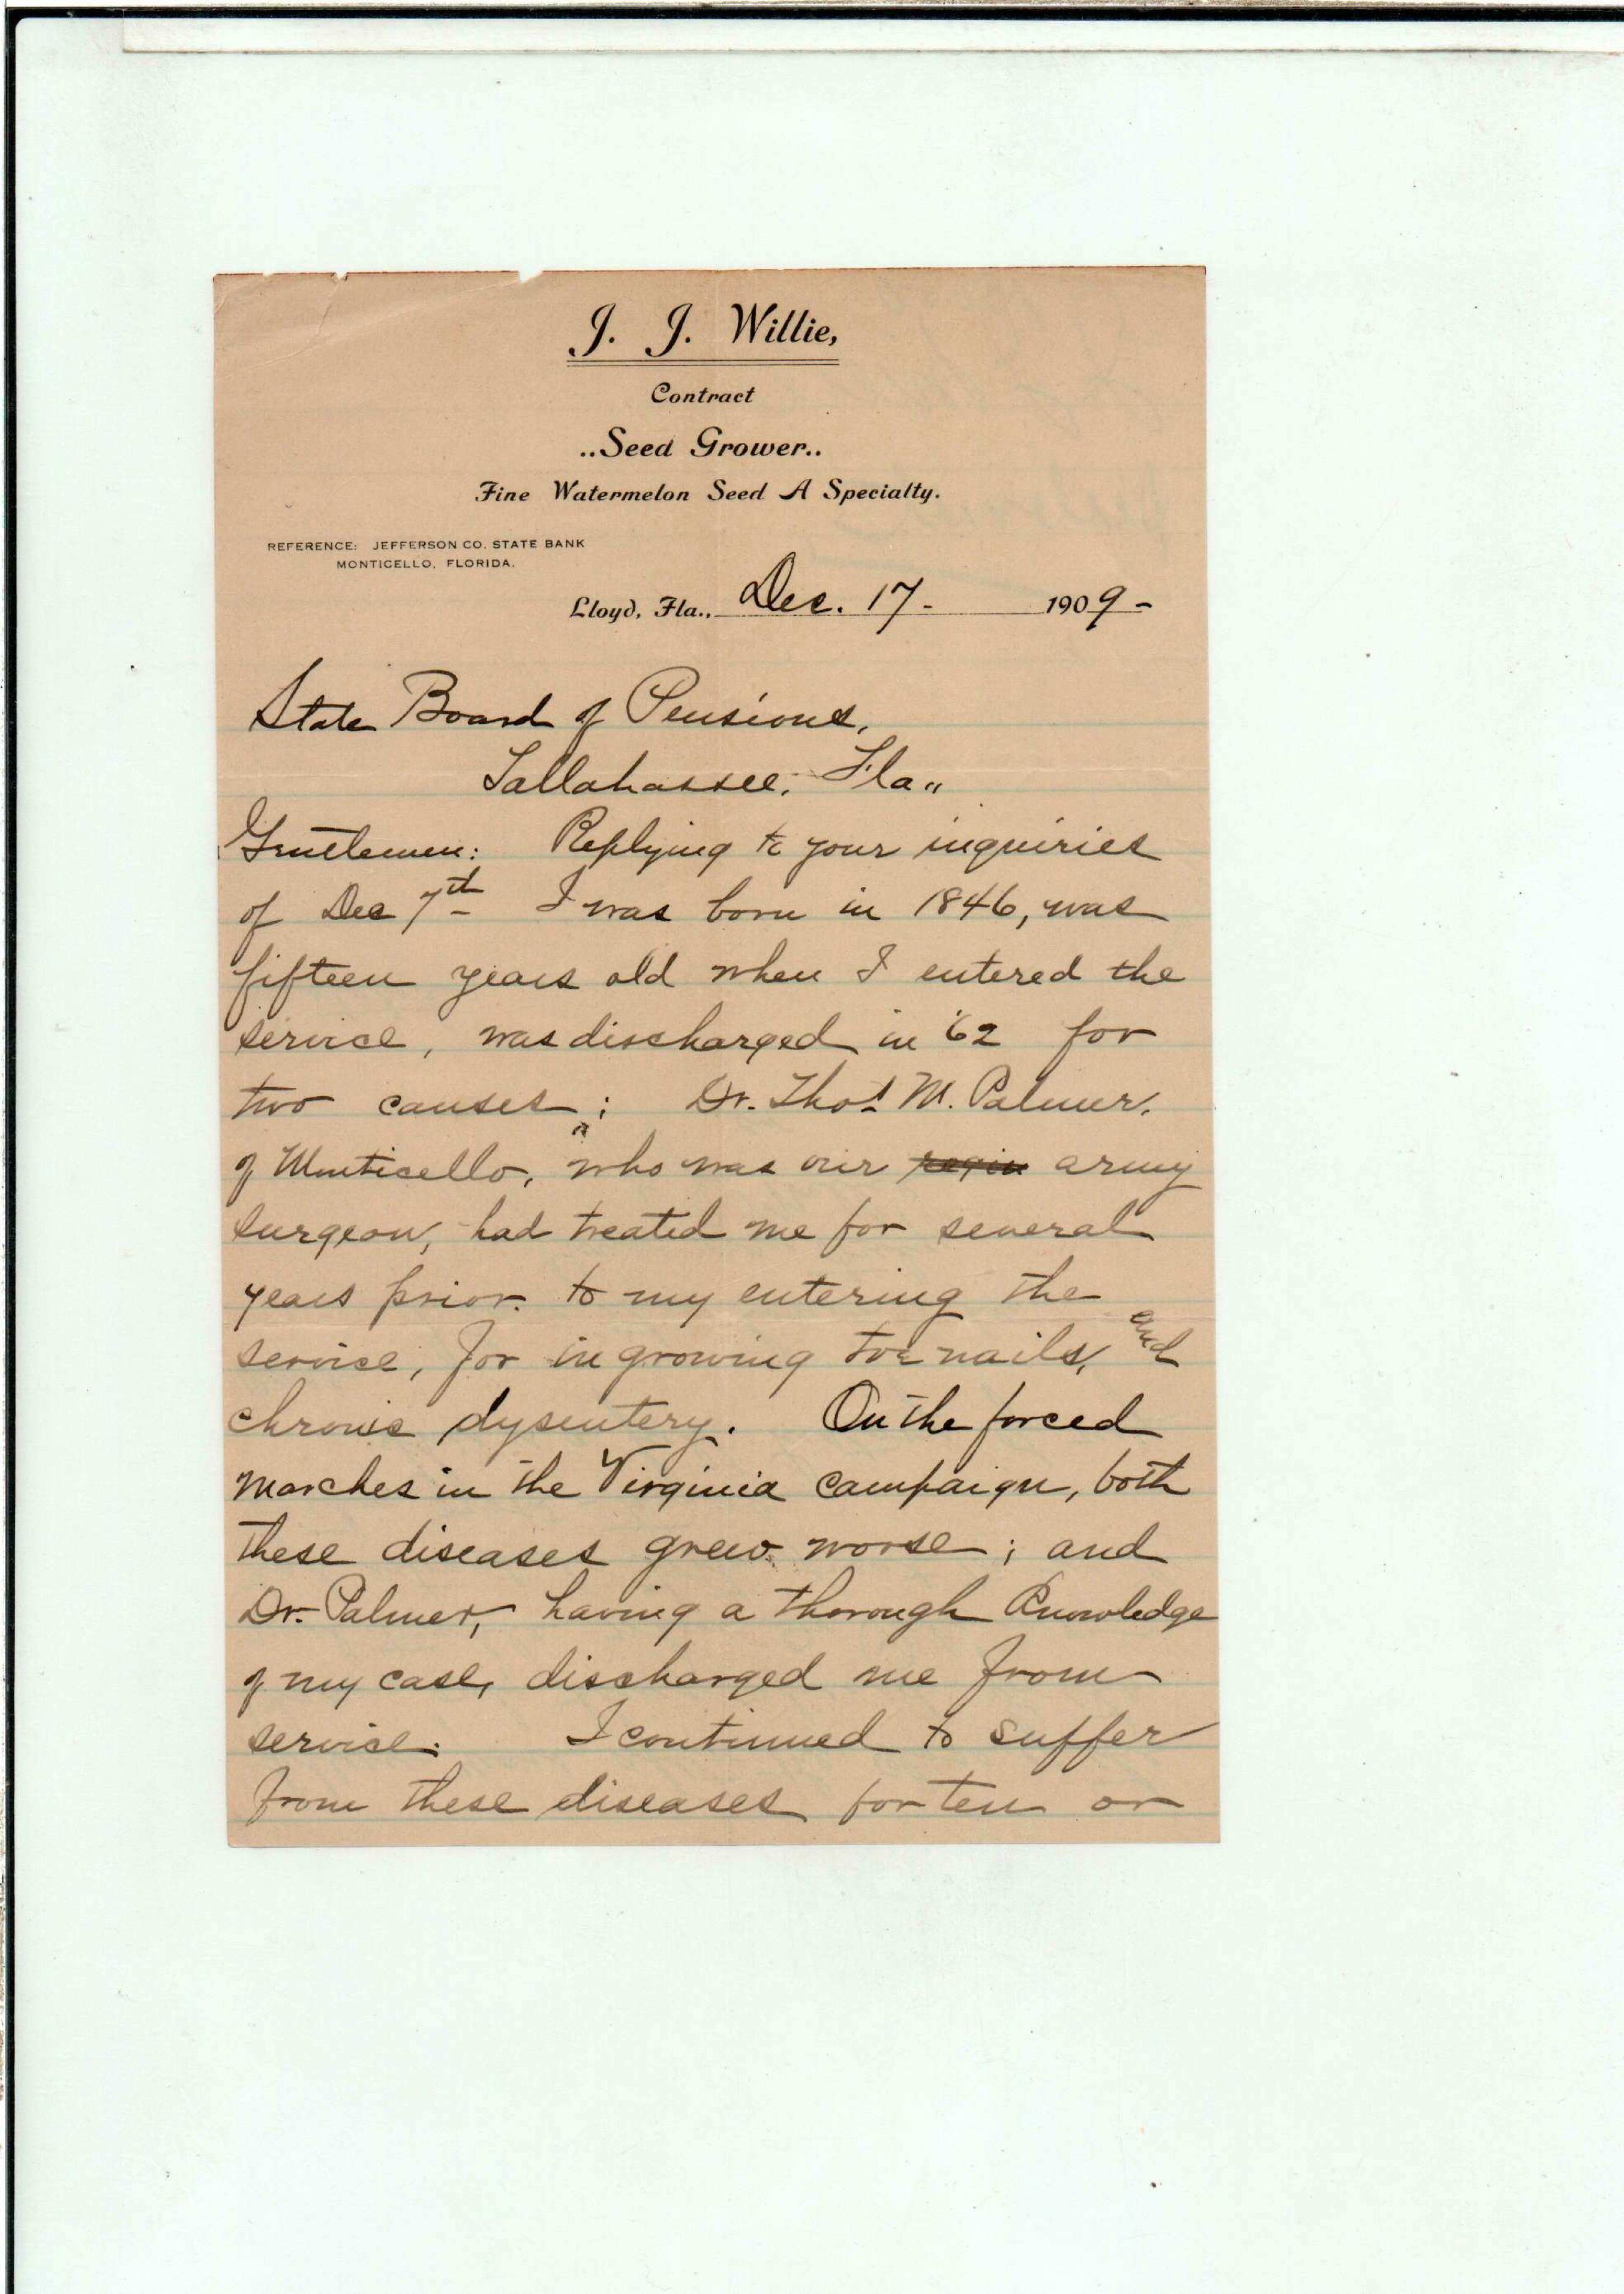 J. J. Willie,
Contract
..Seed Grower..
Fine Watermelon Seed A Specialty.
REFERENCE: JEFFERSON CO. STATE BANK
MONTICELLO, FLORIDA.
Lloyd, Fla., Dec. 17- 1909-
State Board of Pensions,
Tallahassee, Fla..
Gentlemen: Replying to your inquiries
of Dec 7th I was born in 1846, was
fifteen years old when I entered the
service, was discharged in '62 for
two causes; Dr. Thos. M. Palmer,
of Monticello, who was our army
surgeon, had treated me for several
years prior to my entering the
service, for ingrowing toe nails, and
chronic dysentery. On the forced
marches in the Virginia campaign, both
these diseases grew worse; and
Dr. Palmer, having a thorough knowledge
of my case, discharged me from
service. I continued to suffer
from these diseases for ten or